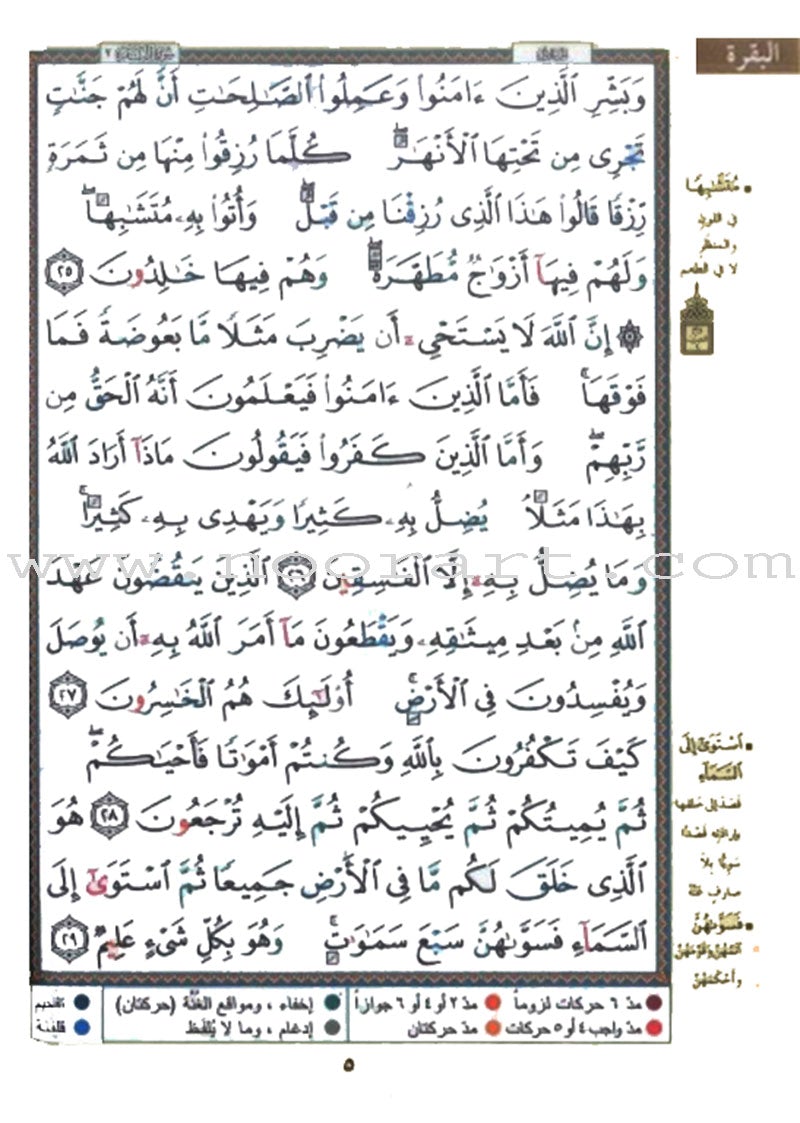 البقرة
سورة البقرة ٢
وَبَشِّرِ ٱلَّذِينَ ءَامَنُوا۟ وَعَمِلُوا۟ ٱلصَّـٰلِحَـٰتِ أَنَّ لَهُمْ جَنَّـٰتٍ
تَجْرِى مِن تَحْتِهَا ٱلْأَنْهَـٰرُ كُلَّمَا رُزِقُوا۟ مِنْهَا مِن ثَمَرَةٍ
رِّزْقًا قَالُوا۟ هَـٰذَا ٱلَّذِى رُزِقْنَا مِن قَبْلُ وَأُتُوا۟ بِهِۦ مُتَشَـٰبِهًا
وَلَهُمْ فِيهَآ أَزْوَٰجٌ مُّطَهَّرَةٌ وَهُمْ فِيهَا خَـٰلِدُونَ ٢٥
۞ إِنَّ ٱللَّهَ لَا يَسْتَحْىِۦٓ أَن يَضْرِبَ مَثَلًا مَّا بَعُوضَةً فَمَا
فَوْقَهَا فَأَمَّا ٱلَّذِينَ ءَامَنُوا۟ فَيَعْلَمُونَ أَنَّهُ ٱلْحَقُّ مِن
رَّبِّهِمْ وَأَمَّا ٱلَّذِينَ كَفَرُوا۟ فَيَقُولُونَ مَاذَآ أَرَادَ ٱللَّهُ
بِهَـٰذَا مَثَلًا يُضِلُّ بِهِۦ كَثِيرًا وَيَهْدِى بِهِۦ كَثِيرًا
وَمَا يُضِلُّ بِهِۦٓ إِلَّا ٱلْفَـٰسِقِينَ ٢٦ ٱلَّذِينَ يَنقُضُونَ عَهْدَ
www.noorart.com
ٱللَّهِ مِنۢ بَعْدِ مِيثَـٰقِهِۦ وَيَقْطَعُونَ مَآ أَمَرَ ٱللَّهُ بِهِۦٓ أَن يُوصَلَ
وَيُفْسِدُونَ فِى ٱلْأَرْضِ أُو۟لَـٰٓئِكَ هُمُ ٱلْخَـٰسِرُونَ ٢٧
كَيْفَ تَكْفُرُونَ بِٱللَّهِ وَكُنتُمْ أَمْوَٰتًا فَأَحْيَـٰكُمْ
ثُمَّ يُمِيتُكُمْ ثُمَّ يُحْيِيكُمْ ثُمَّ إِلَيْهِ تُرْجَعُونَ ٢٨ هُوَ
ٱلَّذِى خَلَقَ لَكُم مَّا فِى ٱلْأَرْضِ جَمِيعًا ثُمَّ ٱسْتَوَىٰٓ إِلَى
ٱلسَّمَآءِ فَسَوَّىٰهُنَّ سَبْعَ سَمَـٰوَٰتٍ وَهُوَ بِكُلِّ شَىْءٍ عَلِيمٌ ٢٩
• مُتَشَـٰبِهًا
في اللون
والمنظر
لا في الطعم
• ٱسْتَوَىٰٓ إِلَى
ٱلسَّمَآءِ
قصد إلى خلقها
بإرادته قصدًا
سويًّا بلا
صارف عنه
• فَسَوَّىٰهُنَّ
وأحكمهنّ
مدّ ٦ حركات لزوماً
مدّ ٢ أو ٤ أو ٦ جوازاً
إخفاء ، ومواقع الغنّة (حركتان)
تفخيم
مدّ واجب ٤ أو ٥ حركات
مدّ حركتان
إدغام ، وما لا يُلفَظ
قلقلة
٥